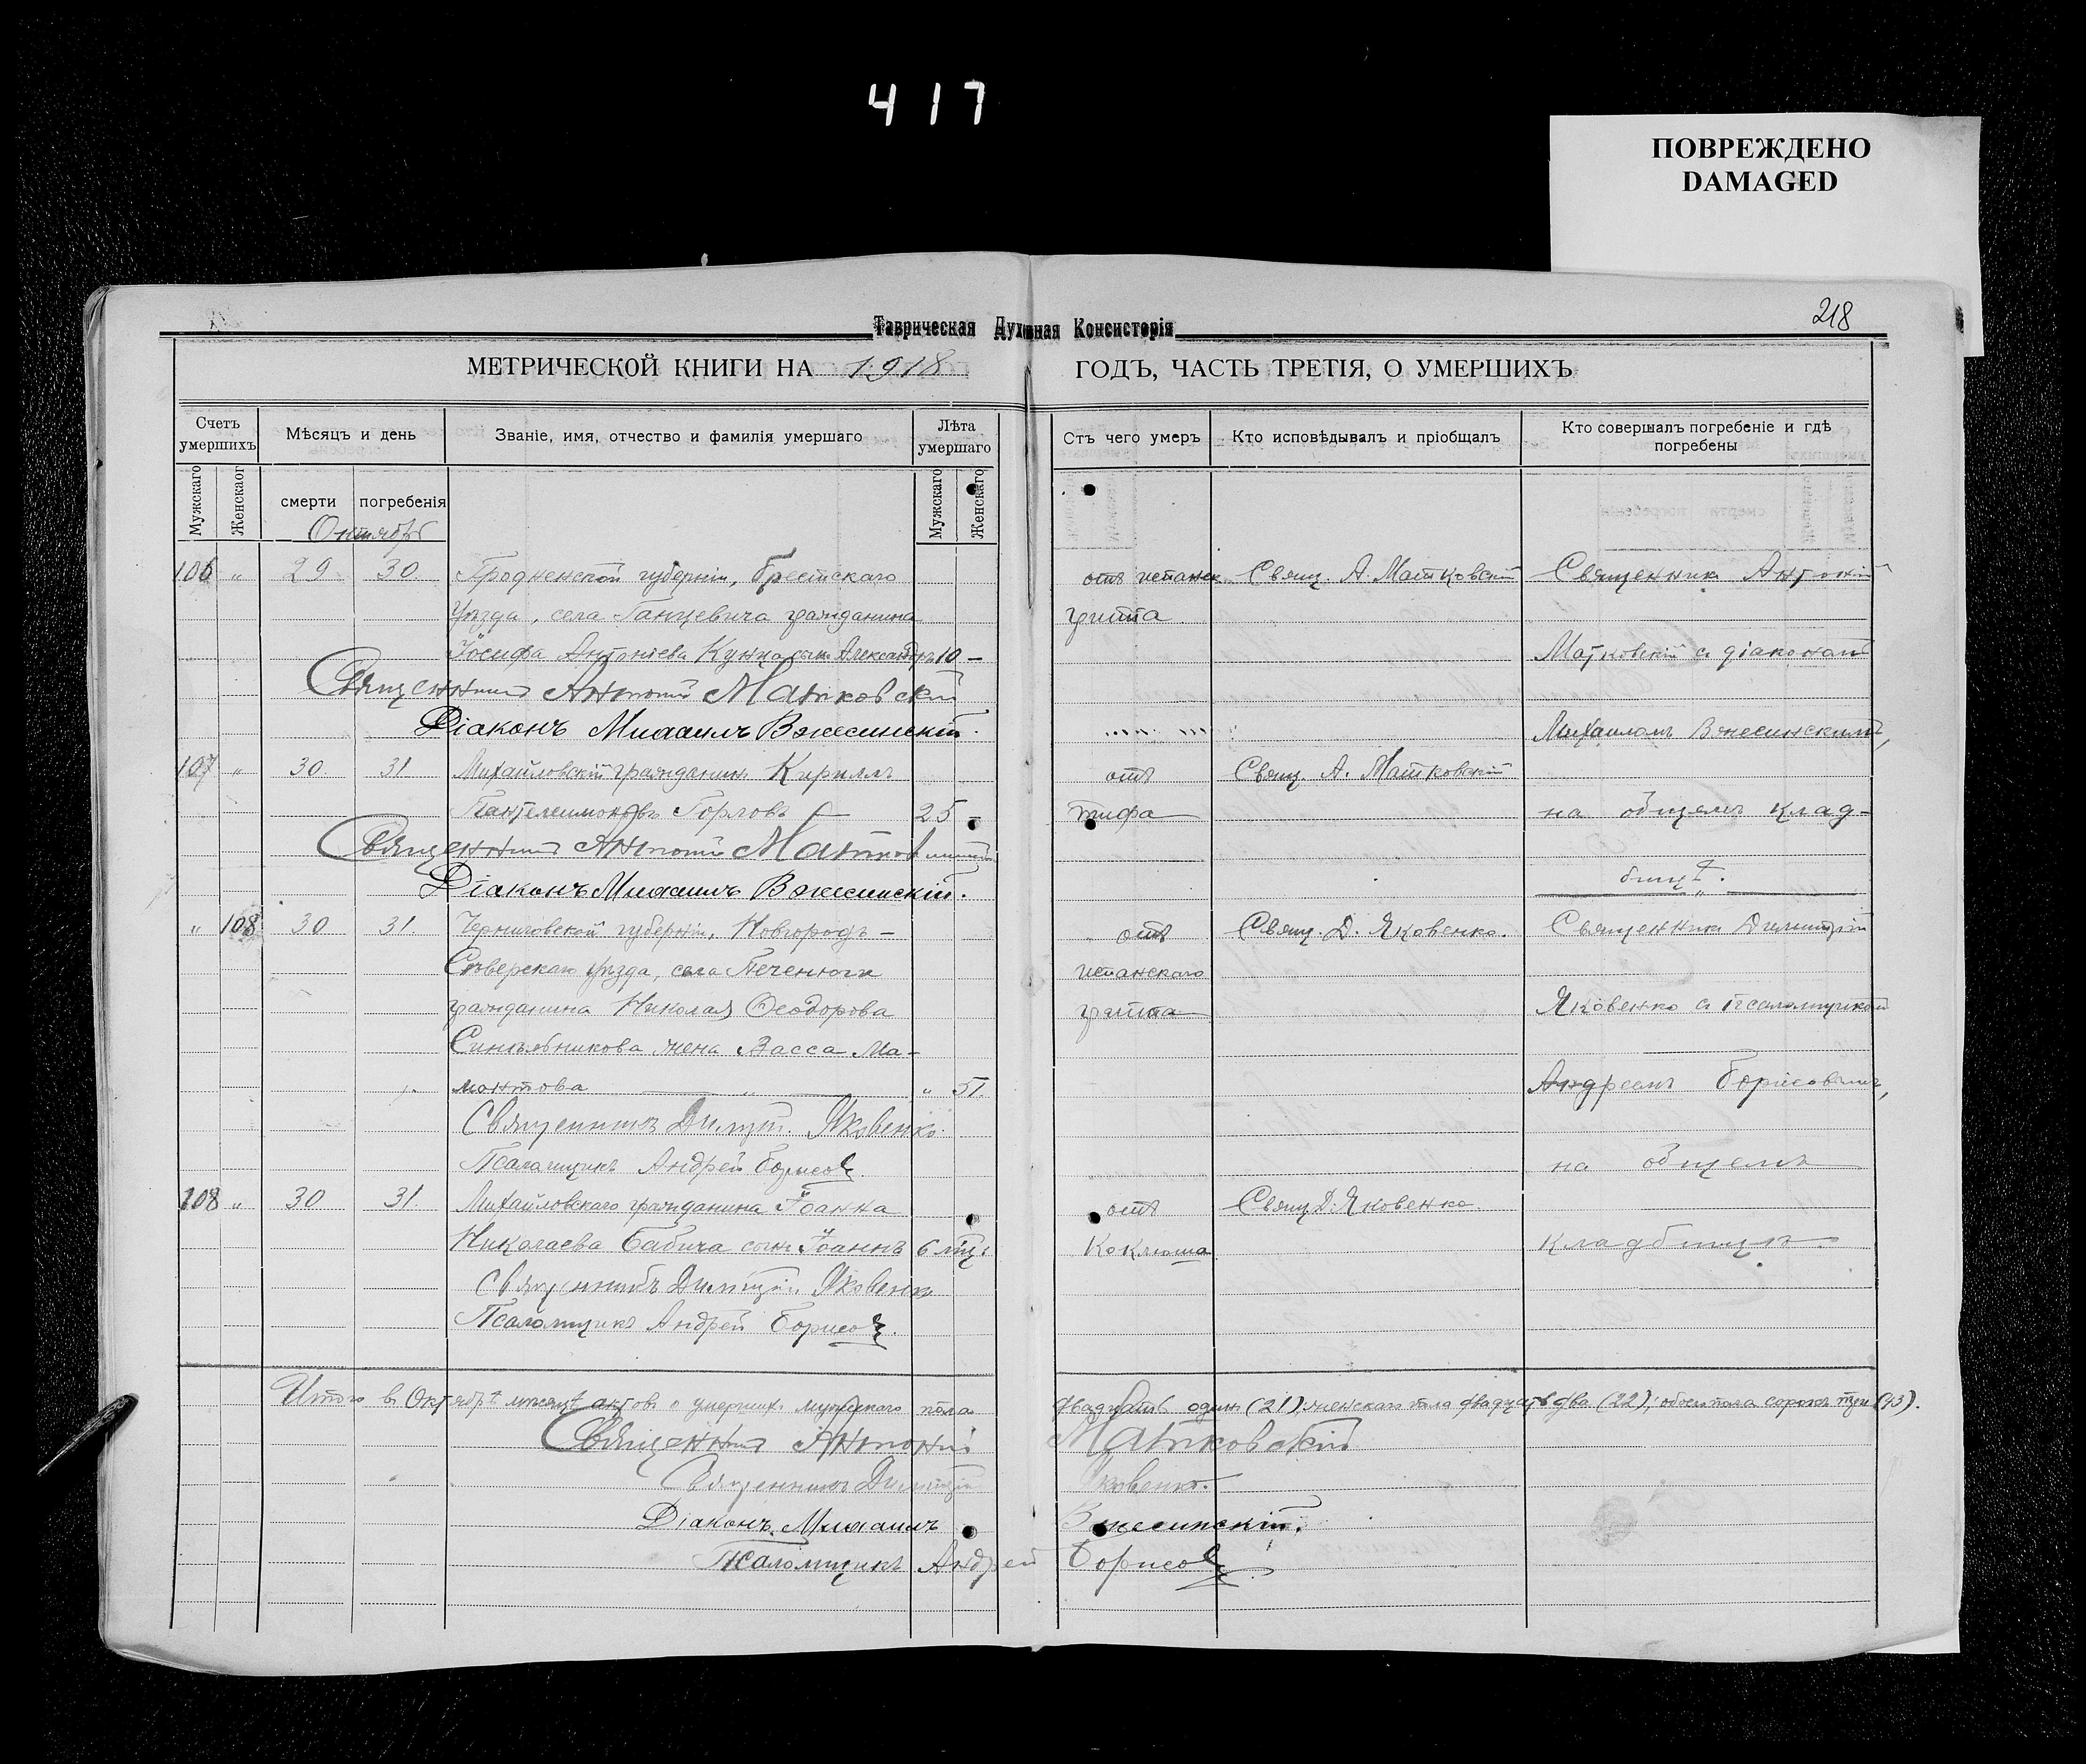 417
ПОВРЕЖДЕНО
DAMAGED
218
Таврическая Духовная Консисторія
МЕТРИЧЕСКОЙ КНИГИ НА 1918 ГОДЪ, ЧАСТЬ ТРЕТІЯ, О УМЕРШИХЪ
Счетъ умершихъ
Мѣсяцъ и день
Званіе, имя, отчество и фамилія умершаго
Лѣта умершаго
Стъ чего умеръ
Кто исповѣдывалъ и пріобщалъ
Кто совершалъ погребеніе и гдѣ погребены
Мужскаго
Женскаог
смерти
погребенія
Мужскаго
Женскаго
Октябрь
106 " 29 30. Гродненской губерніи, Брестскаго отъ испанск. Свящ. А. Матковскій Священникъ Антоній
уѣзда, села Ганцевича гражданина гриппа
Іосифа Антоніева Кунца сынъ Александръ 10 - Матковскій съ діакономъ
Священникъ Антоній Матковскій
Діаконъ Михаилъ Вжесинскій. Михаиломъ Вжесинскимъ,
107 " 30. 31 Михайловскій гражданинъ Кириллъ отъ Свящ. А. Матковскій
Пантелеимоновъ Горловъ 25 - тифа на общемъ клад-
Священникъ Антоній Матковскій
бищѣ.
Діаконъ Михаилъ Вжесинскій.
" 108 30 31. Черниговской губерніи, Новгородъ- отъ Свящ. Д. Яковенко. Священникъ Димитрій
Сѣверскаго уѣзда, села Печенюги испанскаго
гражданина Николая Ѳеодорова гриппа Яковенко съ псаломщикомъ
жена Васса Ма-
монтова " 51. Андреемъ Борисовымъ,
Священникъ Димитр. Яковенко.
Псаломщикъ Андрей Борисовъ на общемъ
108 " 30 31. Михайловскаго гражданина Іоанна отъ Свящ. Д. Яковенко.
Николаева Бабича сынъ Іоаннъ 6 мѣц. Коклюша кладбищѣ.
Священникъ Димитрій Яковенко
Псаломщикъ Андрей Борисовъ.
Итого въ Октябрѣ мѣсяцѣ актовъ о умерших. мужескаго пола двадцать одинъ (21), женскаго пола двадцать два (22), обоего пола сорокъ три (43).
Священникъ Антоній Матковскій
Священникъ Димитрій Яковенко.
Діаконъ Михаилъ Вжесинскій.
Псаломщикъ Андрей Борисовъ